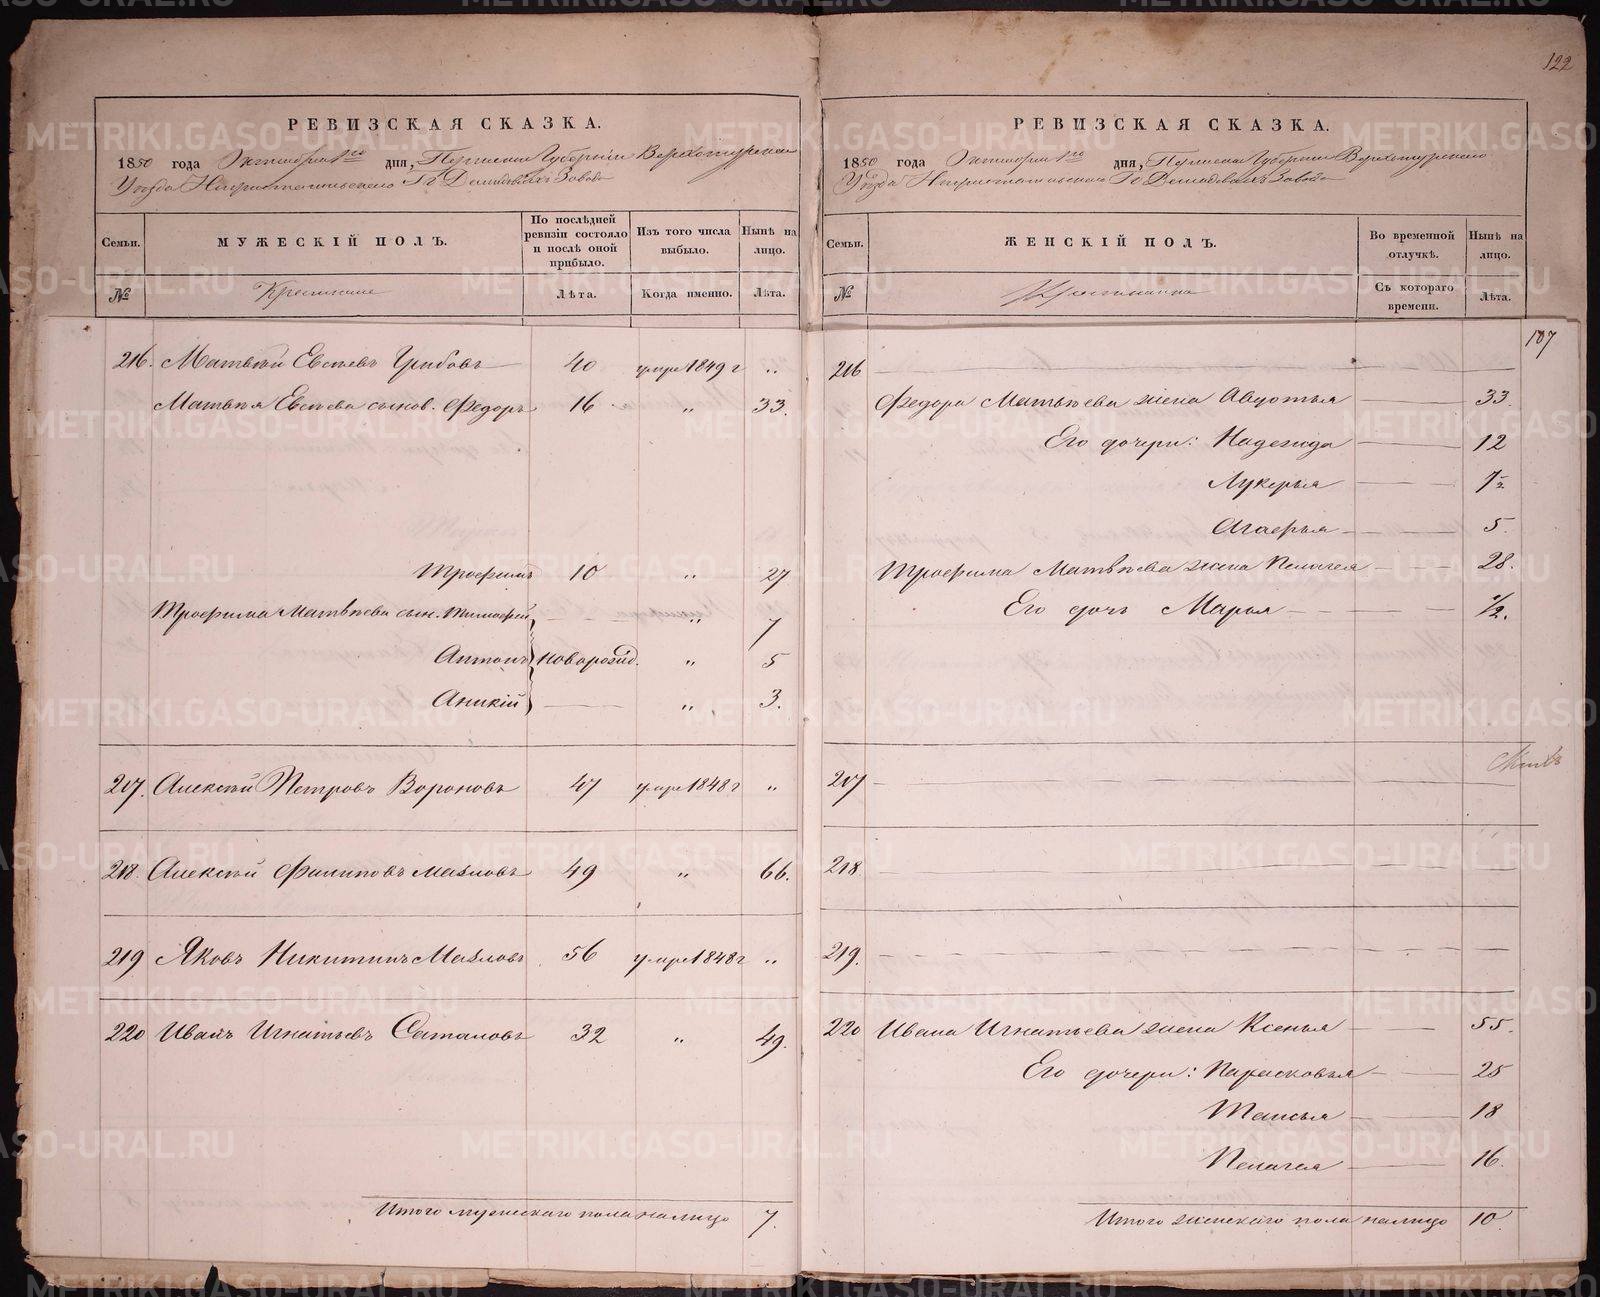 122
РЕВИЗСКАЯ СКАЗКА.
1850 года Октября 1го дня, Пермской Губернии Верхотурскаго
Уѣзда Гг Демидовыхъ Завода
Семьи. МУЖЕСКІЙ ПОЛЪ. По послѣдней ревизіи состояло и послѣ оной прибыло. Изъ того числа выбыло. Нынѣ на лицо.
№ Крестьяне Лѣта. Когда именно. Лѣта.
216. Матвѣй Евсѣевъ Грибовъ 40 умре 1849 г „
Матвѣя Евсѣева сынов. Федоръ 16 „ 33.
Трофимъ 10 „ 27
Трофима Матвѣева сын. Тимофей „ 7
Антонъ новорожд. „ 5
Аникій „ 3.
217. Алексѣй Петровъ Вороновъ 47 умре 1848 г „
218. Алексѣй Филиповъ Масловъ 49 „ 66.
219 Яковъ Никитинъ Масловъ 56 умре 1848 г „
220 Иванъ Игнатьевъ Саталовъ 32 „ 49.
Итого мужескаго пола налицо 7.
РЕВИЗСКАЯ СКАЗКА.
1850 года Октября 1го дня, Пермской Губерніи Верхотурскаго
Уѣзда Гг Демидовыхъ Завода
Семьи. ЖЕНСКІЙ ПОЛЪ. Во временной отлучкѣ. Нынѣ на лицо.
№ Крестьянки Съ котораго времени. Лѣта.
107
216
Федора Матвѣева жена Авдотья 33.
Его дочери: Надежда 12
Лукерья 7½
Агафья 5.
Трофима Матвѣева жена Пелагея 28.
Его дочь Марья ½.
217
218.
219.
220 Ивана Игнатьева жена Ксенья 55.
Его дочери: Парасковья 25
Таисья 18
Пелагея 16.
Итого женскаго пола налицо 10.
METRIKI.GASO-URAL.RU